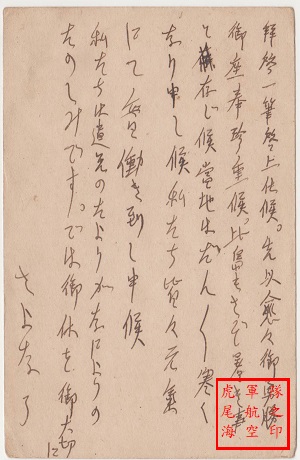 拝啓一筆啓上仕候。先以愈々御
御座奉珍重候。比島もさぞ暑き事
と存じ候當地はだん〱寒く
なり申し候私たち皆々元氣
にて毎日働き致し申候
私たちは遠方のたよりがなによりの
たのしみです。では御体を御大切に
さよなら
虎尾海
軍航空
隊之印